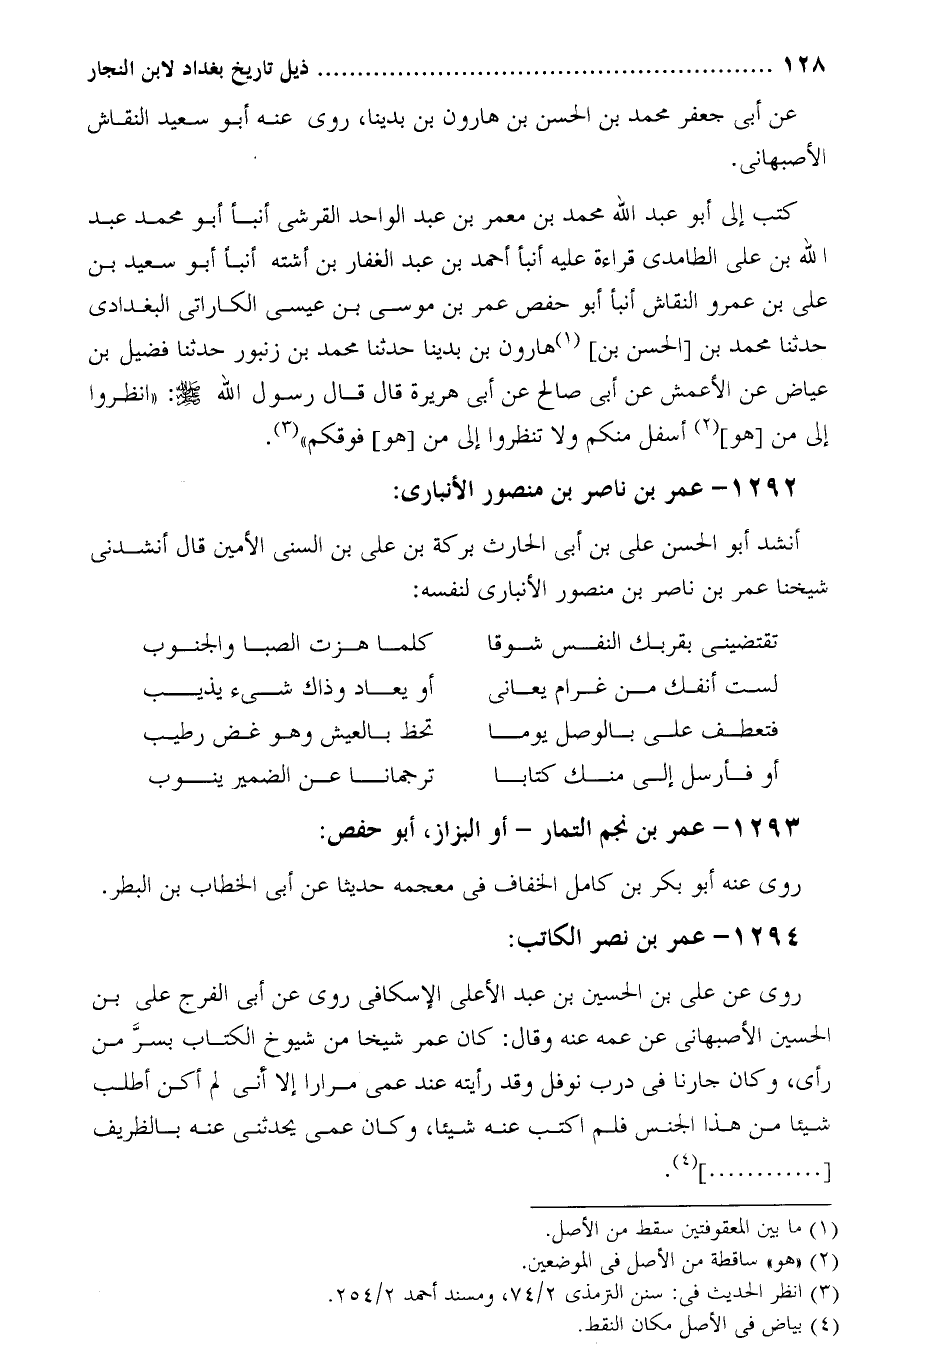 ١٢٨ ........................................................ ذيل تاريخ بغداد لابن النجار
عن أبى جعفر محمد بن الحسن بن هارون بن بدينا، روى عنه أبو سعيد النقاش
الأصبهانى.
كتب إلى أبو عبد الله محمد بن معمر بن عبد الواحد القرشى أنبأ أبو محمد عبد
الله بن على الطامدى قراءة عليه أنبأ أحمد بن عبد الغفار بن أشته أنبأ أبو سعيد بن
على بن عمرو النقاش أنبأ أبو حفص عمر بن موسى بن عيسى الكاراتى البغدادى
حدثنا محمد بن [الحسن بن] (١)هارون بن بدينا حدثنا محمد بن زنبور حدثنا فضيل بن
عياض عن الأعمش عن أبى صالح عن أبى هريرة قال قال رسول الله ﷺ: «انظروا
إلى من [هو](٢) أسفل منكم ولا تنظروا إلى من [هو] فوقكم»(٣).
١٢٩٢- عمر بن ناصر بن منصور الأنبارى:
أنشد أبو الحسن على بن أبى الحارث بركة بن على بن السنى الأمين قال أنشدنى
شيخنا عمر بن ناصر بن منصور الأنبارى لنفسه:
تقتضينى بقربك النفس شوقا كلما هزت الصبا والجنوب
لست أنفك من غرام يعانى أو يعاد وذاك شىء يذيب
فتعطف على بالوصل يوما تحظ بالعيش وهو غض رطيب
أو فأرسل إلى منك كتابا ترجمانا عن الضمير ينوب
١٢٩٣- عمر بن نجم التمار - أو البزاز، أبو حفص:
روى عنه أبو بكر بن كامل الخفاف فى معجمه حديثا عن أبى الخطاب بن البطر.
١٢٩٤- عمر بن نصر الكاتب:
روى عن على بن الحسين بن عبد الأعلى الإسكافى روى عن أبى الفرج على بن
الحسين الأصبهانى عن عمه عنه وقال: كان عمر شيخا من شيوخ الكتاب بسرَّ من
رأى، وكان جارنا فى درب نوفل وقد رأيته عند عمى مرارا إلا أنى لم أكن أطلب
شيئا من هذا الجنس فلم اكتب عنه شيئا، وكان عمى يحدثنى عنه بالظريف
[............](٤).
(١) ما بين المعقوفتين سقط من الأصل.
(٢) «هو» ساقطة من الأصل فى الموضعين.
(٣) انظر الحديث فى: سنن الترمذى ٧٤/٢، ومسند أحمد ٢٥٤/٢.
(٤) بياض فى الأصل مكان النقط.